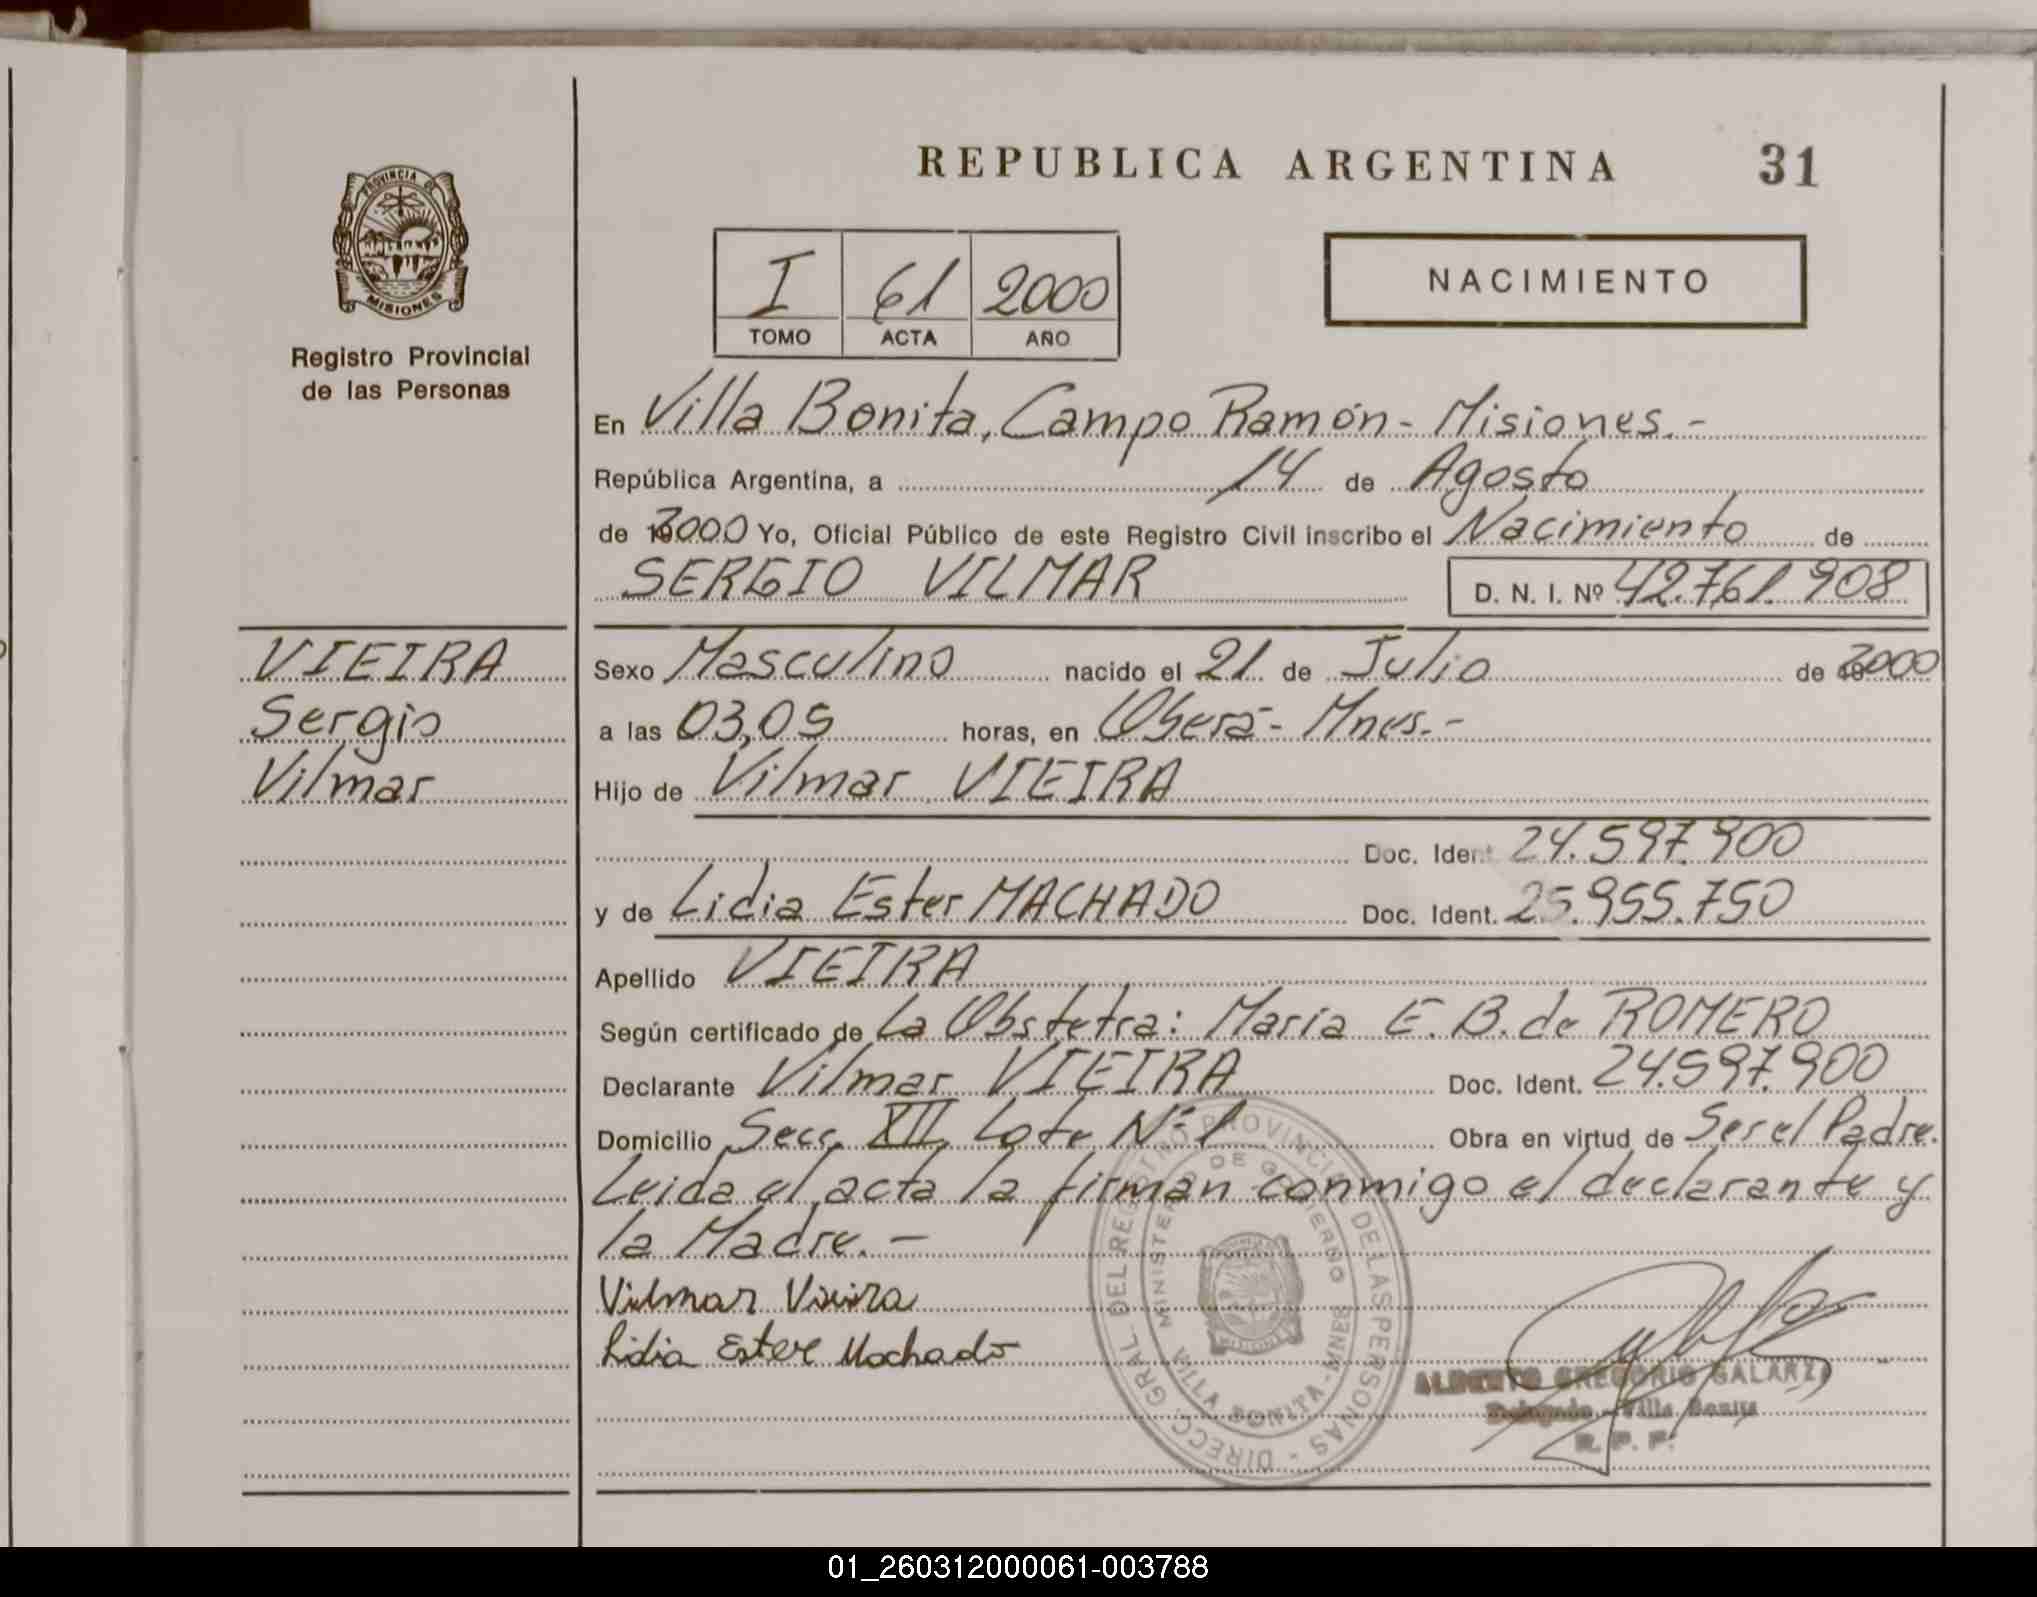 REPUBLICA ARGENTINA 31
PROVINCIA DE
MISIONES
Registro Provincial
de las Personas
I 61 2000
TOMO ACTA AÑO
NACIMIENTO
En Villa Bonita, Campo Ramón - Misiones.-
República Argentina, a 14 de Agosto
de 2000 Yo, Oficial Público de este Registro Civil inscribo el Nacimiento de
SERGIO VILMAR D. N. I. Nº 42.761.908
VIEIRA
Sergio
Vilmar
Sexo Masculino nacido el 21 de Julio de 2000
a las 03,05 horas, en Oberá - Mnes.-
Hijo de Vilmar VIEIRA
Doc. Ident. 24.597.900
y de Lidia Ester MACHADO Doc. Ident. 25.955.750
Apellido VIEIRA
Según certificado de La Obstetra: María E. B. de ROMERO
Declarante Vilmar VIEIRA Doc. Ident. 24.597.900
Domicilio Secc. XII, Lote Nº 1 Obra en virtud de Ser el Padre.
Leida el acta la firman conmigo el declarante y
la Madre. -
Vilmar Vieira
Lidia Ester Machado
DIRECC. GRAL DEL REGISTRO PROVINCIAL DE LAS PERSONAS -
MINISTERIO DE GOBIERNO
VILLA BONITA - MNES
ALBERTO GREGORIO GALARZA
Delegado - Villa Bonita
R. P. P.
01_260312000061-003788